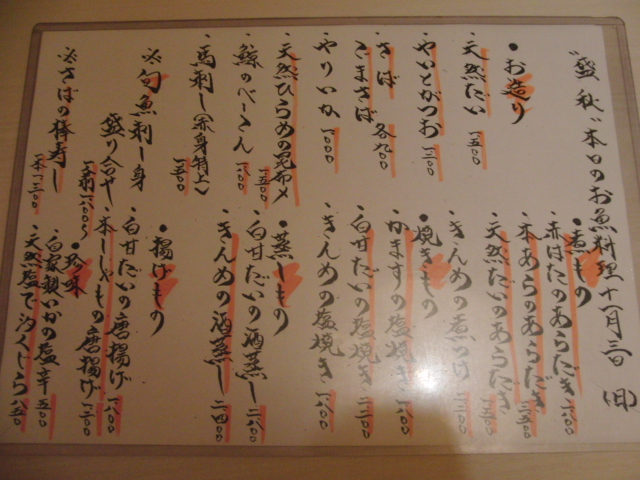 "盛秋"本日のお魚料理十一月三日(日)
・お造り
・天然だい 一五〇〇
・やいとがつお 一三〇〇
・さば
・ごまさば 各九〇〇
・やりいか 一〇〇〇
・天然ひらめの昆布〆 一五〇〇
・鯨のべーこん 一八〇〇
・馬刺し(赤身特上) 一五〇〇
※旬魚刺し身
盛り合せ 一人前一八〇〇〜
※さばの棒寿し 一本一三〇〇
・煮もの
・赤はたのあらだき 一八〇〇
・本あらのあらだき 一五〇〇
・天然だいのあらだき 一五〇〇
・きんめの煮つけ 二二〇〇
・焼きもの
・かますの塩焼き 一八〇〇
・白甘だいの塩焼き 二二〇〇
・きんめの塩焼き 一八〇〇
・蒸しもの
・白甘だいの酒蒸し 二八〇〇
・きんめの酒蒸し 二四〇〇
・揚げもの
・白甘だいの唐揚げ 一八〇〇
・本ししゃもの唐揚げ 一二〇〇
・珍味
・自家製いかの塩辛 五〇〇
・天然塩で汐くじら 八五〇